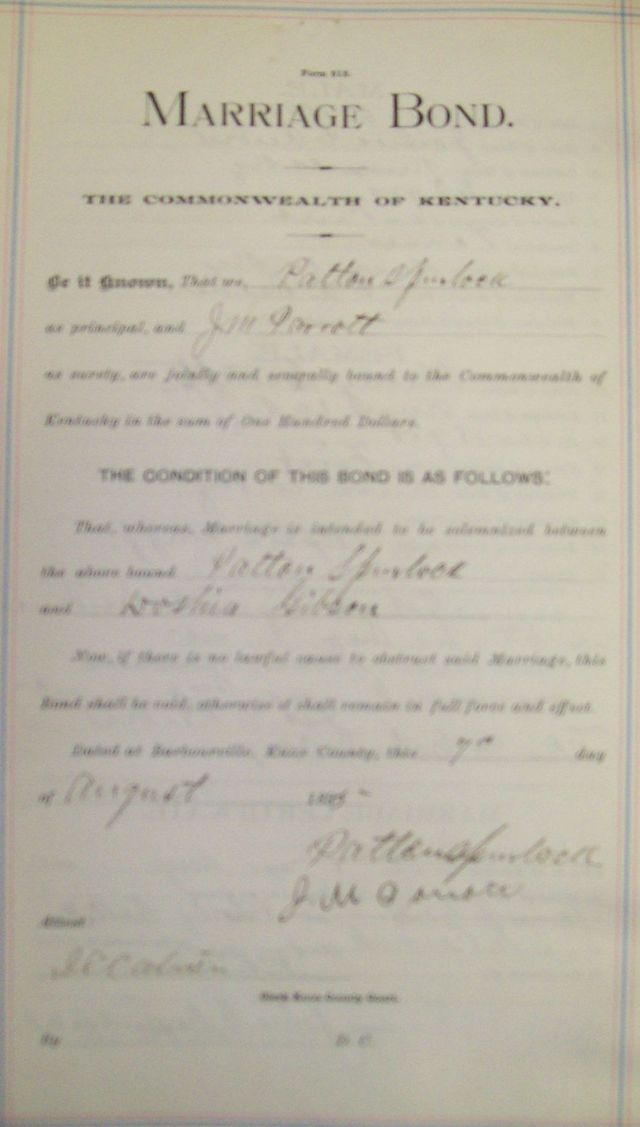 Form 213.
MARRIAGE BOND.
THE COMMONWEALTH OF KENTUCKY.
Be it Known, That we, Patton Spurlock
as principal, and J M Parrott
as surety, are jointly and severally bound to the Commonwealth of
Kentucky in the sum of One Hundred Dollars.
THE CONDITION OF THIS BOND IS AS FOLLOWS:
That, whereas, Marriage is intended to be solemnized between
the above bound Patton Spurlock
and Doshia Gibson
Now, if there is no lawful cause to obstruct said Marriage, this
Bond shall be void, otherwise it shall remain in full force and effect.
Dated at Barbourville, Knox County, this 7" day
of August 189
Patton Spurlock
J M Parrott
Attest:
Clerk Knox County Court.
By D. C.